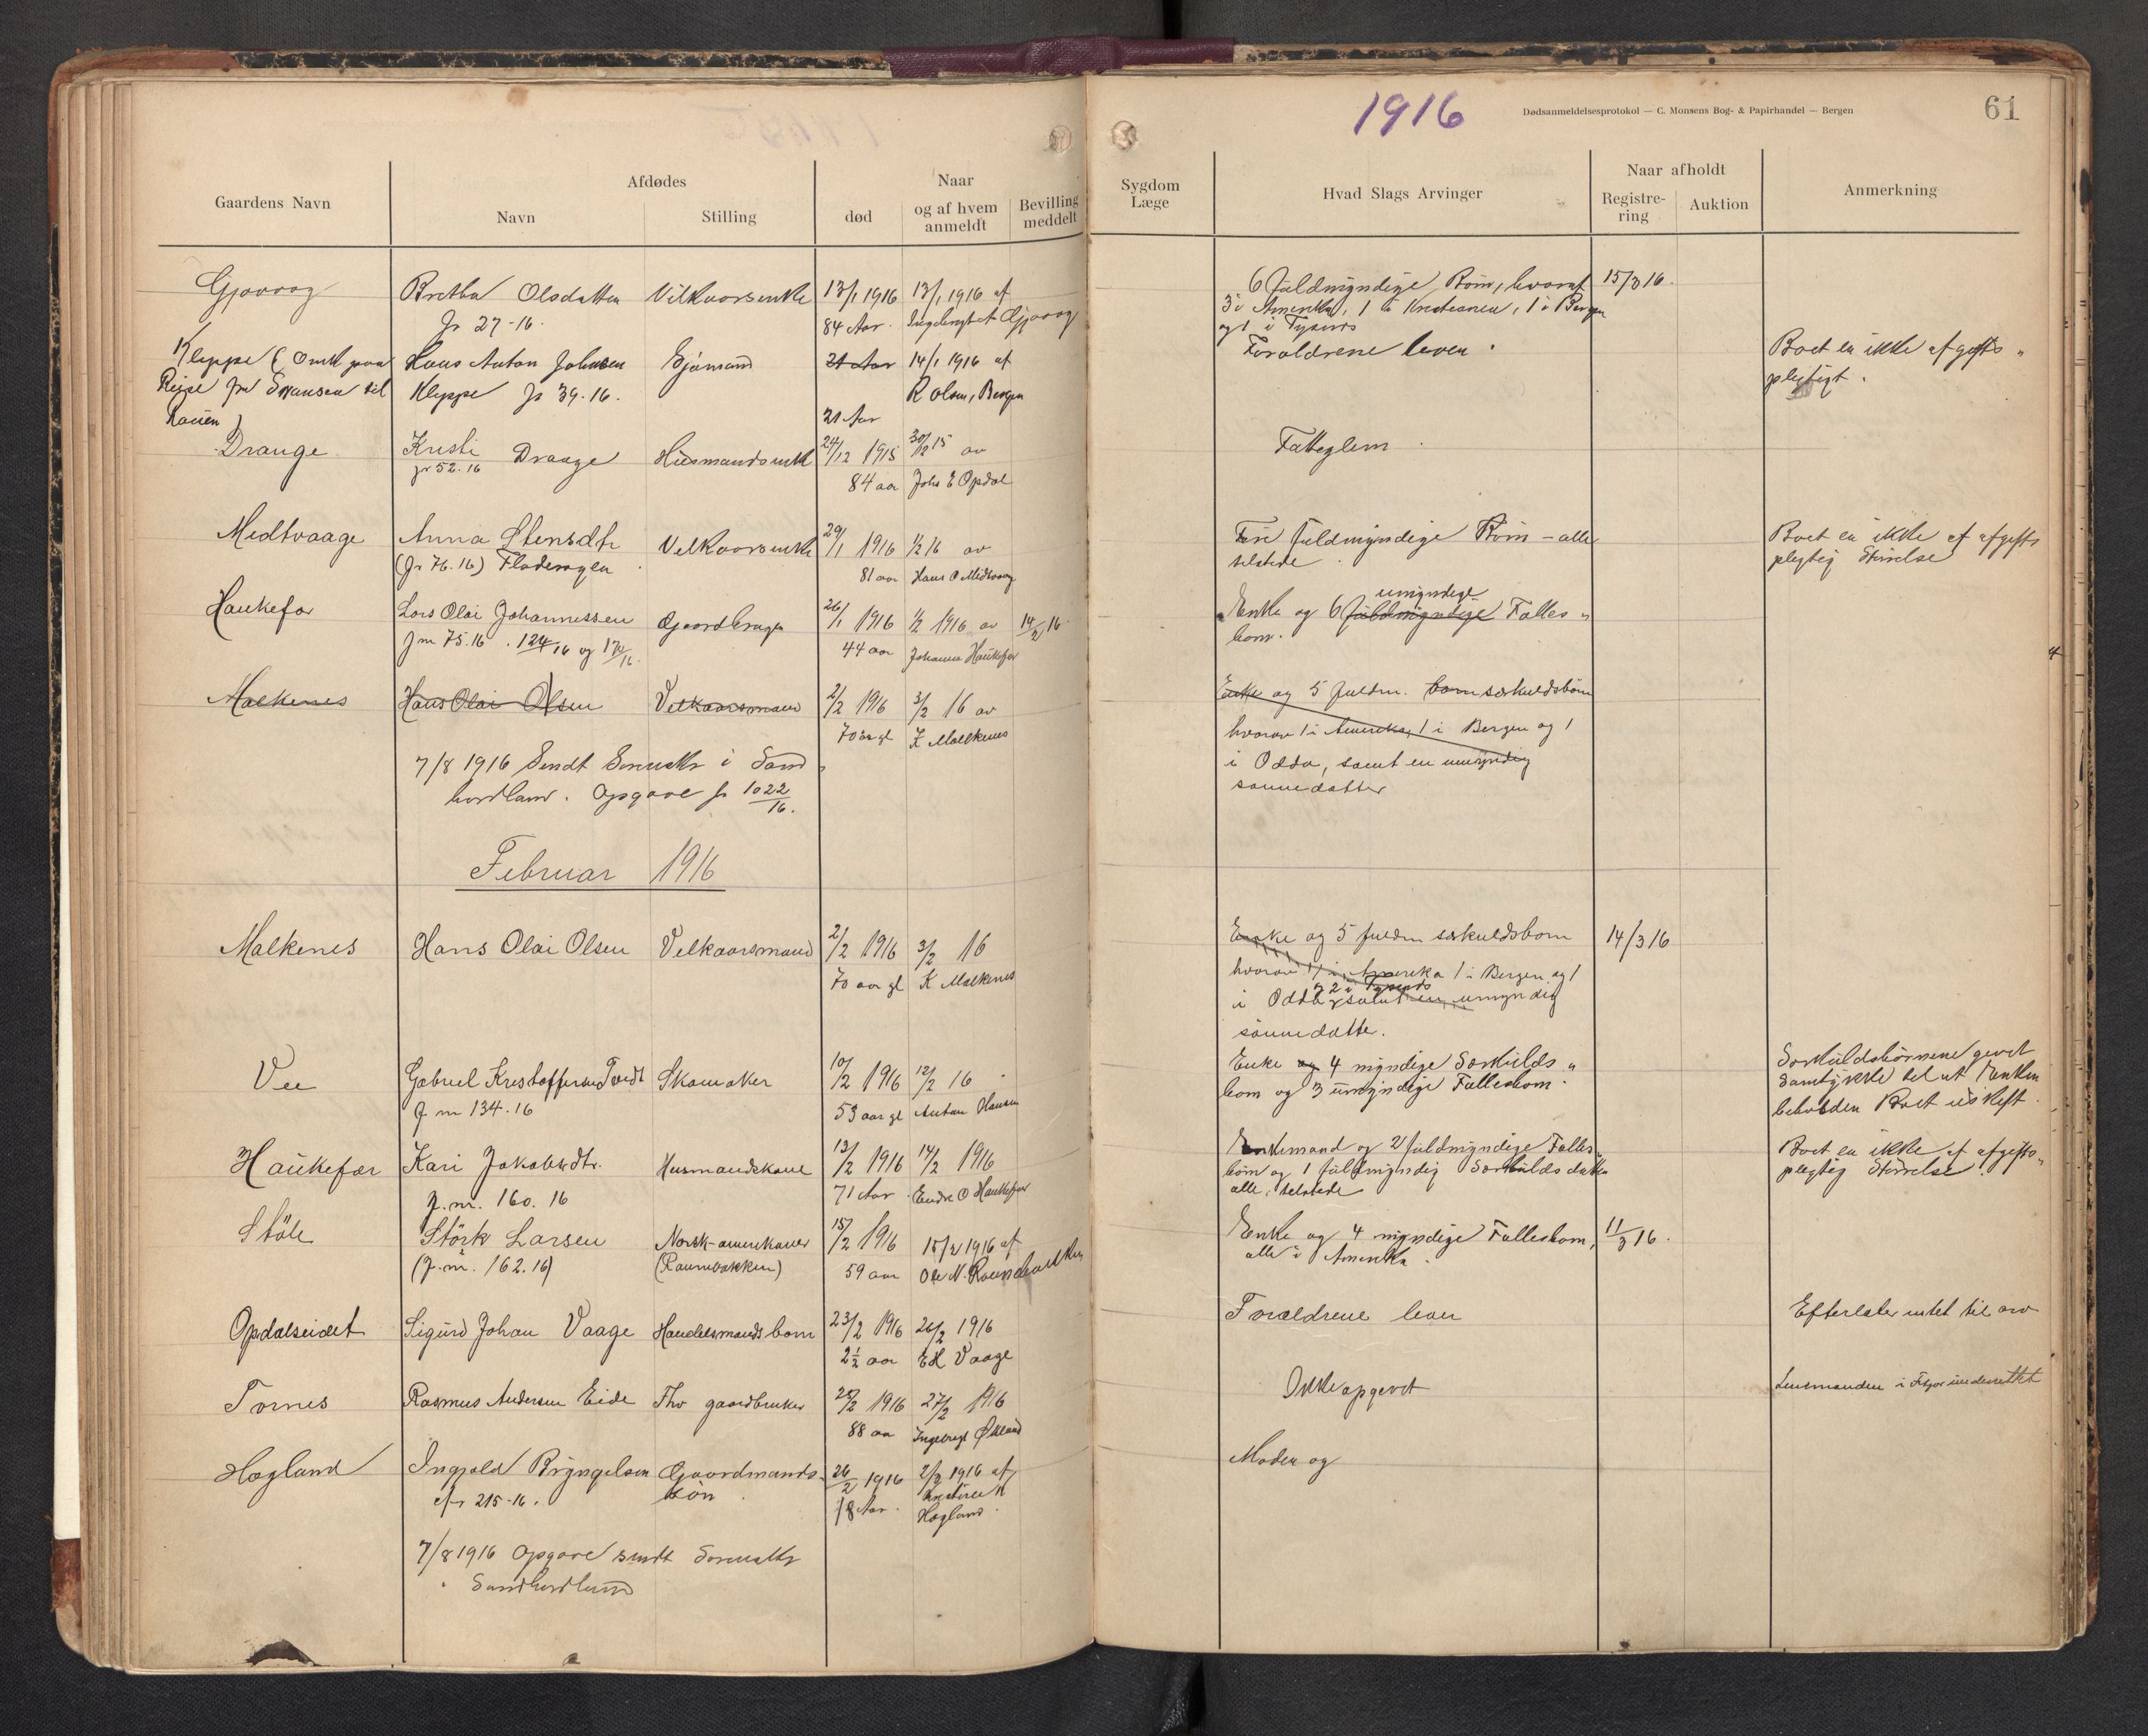 1916
Dødsanmeldelsesprotokol — C. Monsens Bog- & Papirhandel — Bergen
61
Gaardens Navn
Afdødes
Navn
Stilling
Naar
død
og af hvem anmeldt
Bevilling meddelt
Sygdom
Læge
Hvad Slags Arvinger
Naar afholdt
Registrering
Auktion
Anmerkning
Gjøvaag Bretha Olsdatter Vilkaarsenke 13/1 1916 13/1 1916 af
Jr 27-16. 84 Aar. Ingebrigt A Gjøvaag
6 fuldmyndige Børn, hvoraf 15/3 16.
3 i Amerika, 1 i Kristiania, 1 i Bergen
og 1 i Tysnes
Kleppe (Omk paa Hans Anton Johnsen Sjømand 21 Aar 14/1 1916 af
Reise fra Swansea til Kleppe Jr 39.16. R Olsen, Bergen
Rouen) 21 Aar
Forældrene lever. Boet er ikke afgifts-
pligtigt.
Drange Kristi Drange Husmandsenke 24/12 1915 30/12 15 av
Jr 52.16 84 aar Johs E Opdal
Fattiglem.
Medtvaage Anna Stensdtr Velkaarsenke 29/1 1916 1/2 16 av
(Jr 76.16) Fladevagen 81 aar Hans O Medtvaag
Fire fuldmyndige Børn - alle Boet er ikke af afgifts
tilstede pligtig Størrelse
Haukefær Lars Olai Johannessen Gaardbruger 26/1 1916 1/2 1916 av 14/2 16
Jnr 75.16. 124/16 og 170/16. 44 aar Johanna Haukefær
umyndige
Enke og 6 fuldmyndige Fælles-
børn.
Malkenes Hans Olai Olsen Velkaarsmand 2/2 1916 3/2 16 av
70 aar gl K Malkenes
Enke og 5 fuldm. børn særkuldsbørn
hvorav 1 i Amerika, 1 i Bergen og 1
i Odda, samt en umyndig
sønnedatter
7/8 1916 Sendt Sorenskr i Sønd
hordland. Opgave Jr 1022/16.
Februar 1916
Malkenes Hans Olai Olsen Velkaarsmand 2/2 1916 3/2 16
70 aar gl K Malkenes
Enke og 5 fuldm særkuldsbørn 14/3 16
hvorav 1 i Amerika 1 i Bergen og 1
og 2 i Tysnes
i Odda, samt en umyndig
sønnedatter.
Vee Gabriel Kristoffersen Tveidt Skomaker 10/2 1916 12/2 16
J. nr 134.16 53 aar gl Anton Hansen
Enke og 4 myndige Særkulds-
børn og 3 umyndige Fællesbørn.
Særkuldsbørnene gevet
Samtykke til at Enken
beholder Boet uskift.
Haukefær Kari Jakobsdtr. Husmandskone 13/2 1916 14/2 1916
J. nr. 160.16 71 Aar. Endre O Haukefær
Enkemand og 2 fuldmyndige Fælles-
børn og 1 fuldmyndig Særkuldsdatter
alle tilstede
Boet er ikke af afgifts-
pligtig Størrelse.
Støle Størk Larsen Norsk-amerikaner 15/2 1916 15/2 1916 af
(J. nr. 162.16) (Raunebakken) 59 aar Ole N. Raunebakken
Enke og 4 myndige Fællesbørn, 11/3 16.
alle i Amerika.
Opdalseidet Sigurd Johan Vaage Handelsmands barn 23/2 1916 26/2 1916
2½ aar E H Vaage
Forældrene lever Efterlater intet til arv
Tornes Rasmus Andersen Eide Fhv gaardbruker 25/2 1916 27/2 1916
88 aar Ingebrigt Økland
Ikke opgevet Lensmanden i Fitjar underrettet
Høgland Ingvald Brynjulsen Gaardmands- 26/2 1916 2/3 1916 af
Jr 215-16. søn. 18 Aar. Kristine K
Høgland.
Moder og
7/8 1916 Opgave sendt Sorenskr
i Søndhordland